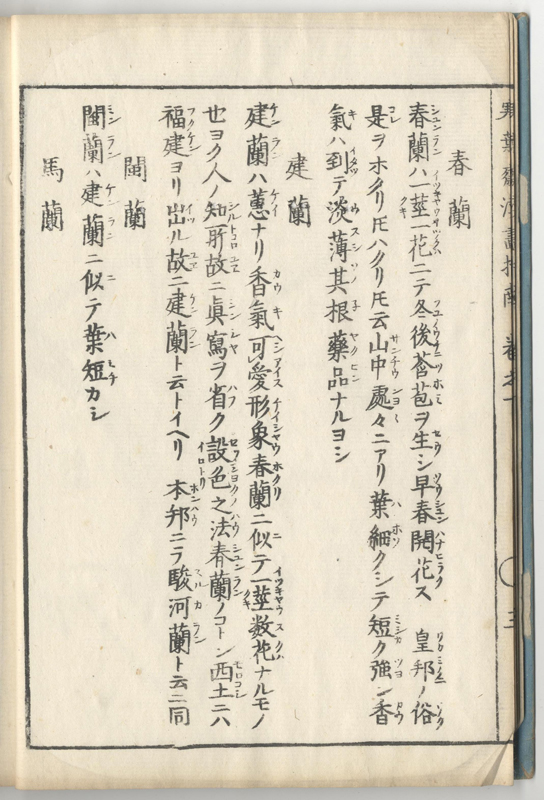 春蘭
春蘭ハ一莖一花ニテ冬後蒼苞ヲ生シ早春開花ス 皇邦ノ俗
是ヲホクリ𪜈ハクリ𪜈云山中處々ニアリ葉細クシテ短ク強シ香
氣ハ到テ淡薄其根藥品ナルヨシ
建蘭
建蘭ハ蕙ナリ香氣可愛形象春蘭ニ似テ一莖数花ナルモノ
也ヨク人ノ知所故ニ眞寫ヲ省ク設色之法春蘭ノコトシ西土ニハ
福建ヨリ出ル故ニ建蘭ト云トイヘリ 本邦ニヲ駿河蘭ト云ニ同
閩蘭
閩蘭ハ建蘭ニ似テ葉短カシ
馬蘭